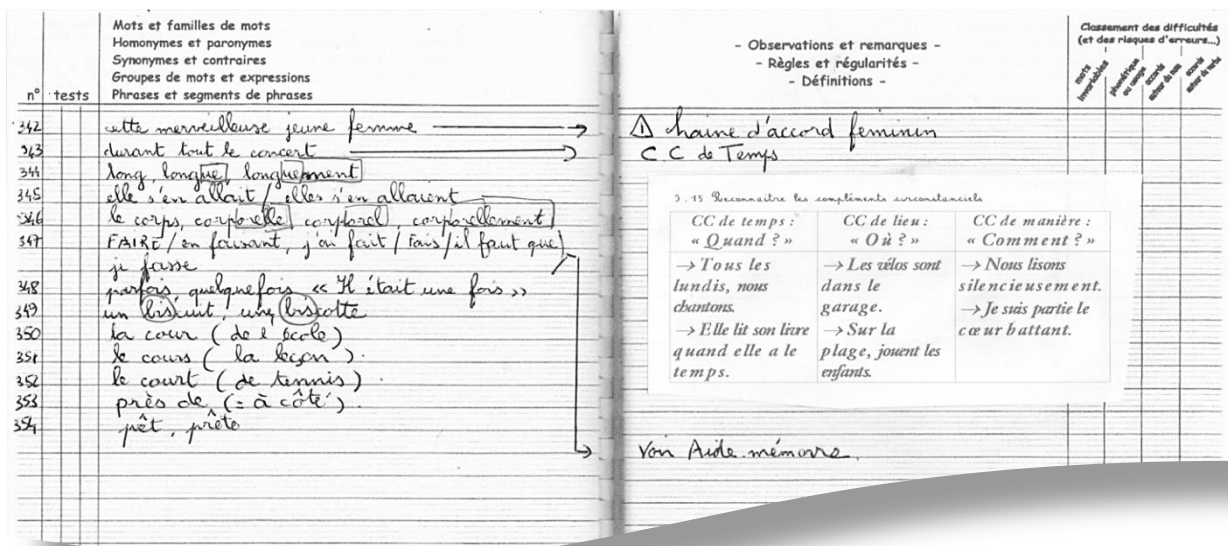 Mots et familles de mots
Homonymes et paronymes
Synonymes et contraires
Groupes de mots et expressions
n° tests Phrases et segments de phrases
342 cette merveilleuse jeune femme
343 durant tout le concert
344 long, longue, longuement
345 elle s'en allait / elles s'en allaient
346 le corps, corporelle, corporel, corporellement
347 FAIRE / en faisant, j'ai fait / Fais / il faut que
je fasse
348 parfois, quelquefois « Il était une fois »
349 un biscuit, une biscotte
350 la cour (de l'école)
351 le cours (la leçon).
352 le court (de tennis).
353 près de, (= à côté).
354 pêt, prête
- Observations et remarques -
- Règles et régularités -
- Définitions -
Classement des difficultés
(et des risques d'erreurs...)
mots invariables
phonétique ou usage
accords autour du nom
accords autour du verbe
haine d'accord feminin
CC de Temps
3.15 Reconnaitre les compléments circonstanciels
CC de temps : CC de lieu : CC de manière :
« Quand ? » « Où ? » « Comment ? »
→ Tous les → Les vélos sont → Nous lisons
lundis, nous dans le silencieusement.
chantons. garage. → Je suis partie le
→ Elle lit son livre → Sur la cœur battant.
quand elle a le plage, jouent les
temps. enfants.
Voir Aide-mémoire